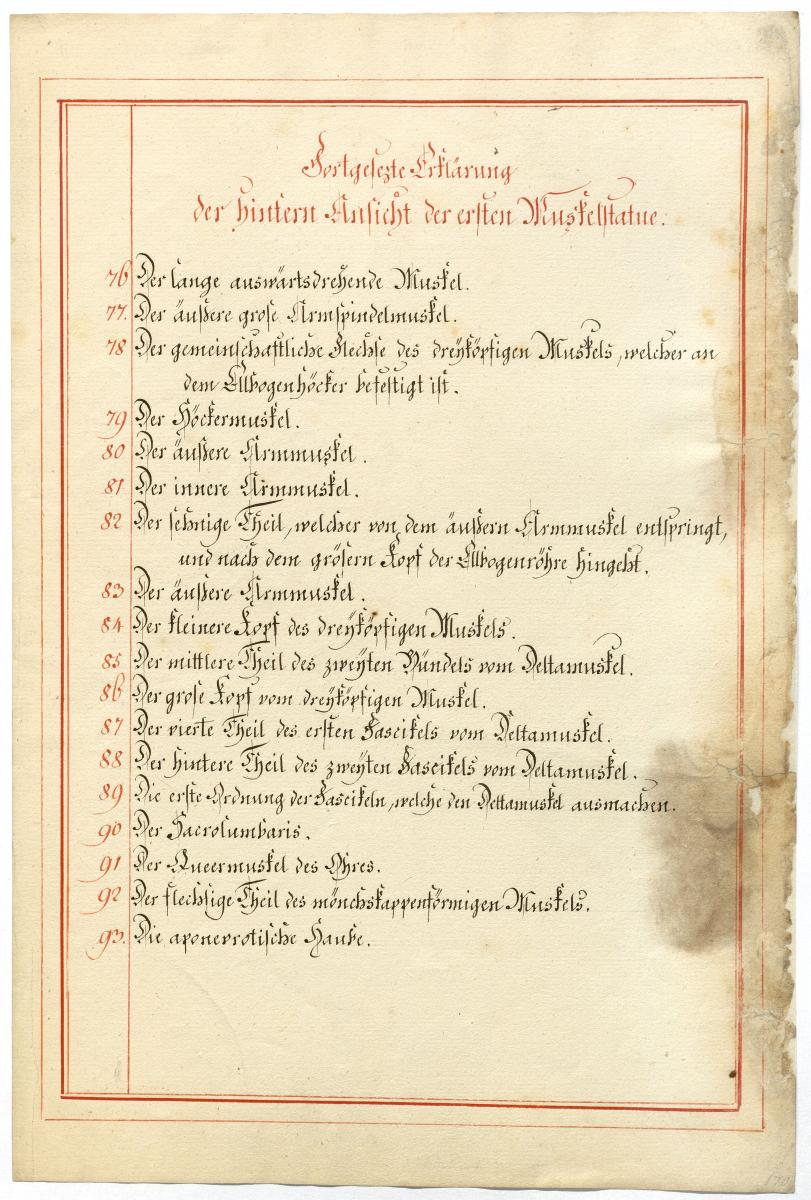 Fortgesezte Erklärung
der hintern Ansicht der ersten Muskelstatue.
76 Der lange auswärtsdrehende Muskel.
77. Der äußere grose Armspindelmuskel.
78 Der gemeinschaftliche Flechse des dreyköpfigen Muskels, welcher an
dem Ellbogenhöcker befestigt ist.
79 Der Höckermuskel.
80 Der äußere Armmuskel.
81 Der innere Armmuskel.
82 Der sehnige Theil, welcher von dem äußern Armmuskel entspringt,
und nach dem grösern Kopf der Ellbogenröhre hingeht.
83 Der äußere Armmuskel.
84 Der kleinere Kopf des dreyköpfigen Muskels.
85 Der mittlere Theil des zweyten Bündels vom Deltamuskel.
86 Der grose Kopf vom dreyköpfigen Muskel.
87 Der vierte Theil des ersten Fascikels vom Deltamuskel.
88 Der hintere Theil des zweyten Fascikels vom Deltamuskel.
89 Die erste Ordnung der Fascikeln, welche den Deltamuskel ausmachen.
90 Der Sacrolumbaris.
91 Der Queermuskel des Ohres.
92 Der flechsige Theil des mönchskappenförmigen Muskels.
93. Die aponevrotische Haube.